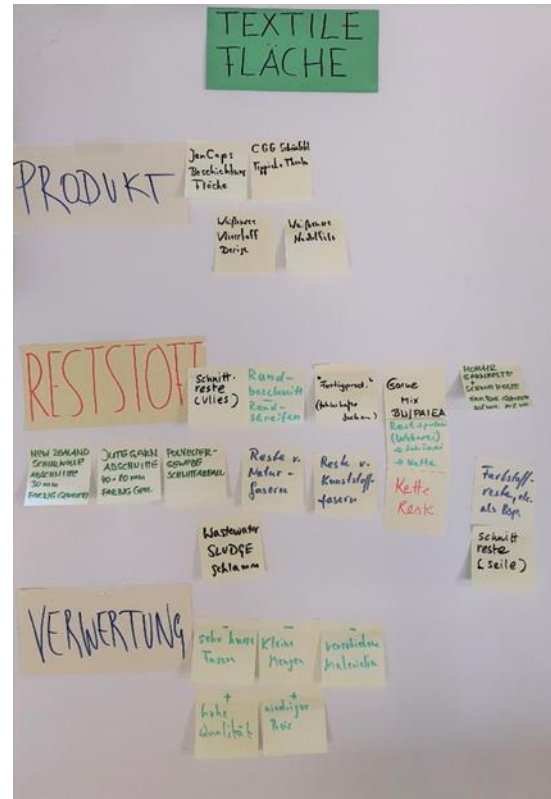 TEXTILE
FLÄCHE
PRODUKT
JenCaps
Beschichtung
Fläche
CGG
Teppich
Weißensee
Vliesstoff
Weißensee
Nadelfilz
RESTSTOFF
Schnitt-
reste
(Vlies)
Rand-
beschnitt
Rand-
streifen
"Fertigprod."
Garne
Mix
BW/PA/EA
Restspulen
(Weberei)
→ Kette
Kette
Reste
MOHAIR
GARNRESTE
+
NEW ZEALAND
SCHURWOLLE
ABSCHNITTE
30 mm
FARBIG GEMISCHT
JUTEGARN
ABSCHNITTE
FARBIG GEM.
POLYESTER-
GEWEBE
SCHNITTABFALL
Reste v.
Natur-
fasern
Reste v.
Kunststoff-
fasern
Farbstoff-
reste, etc.
als Bsp.
Schnitt
reste
(Seile)
Wastewater
SLUDGE
Schlamm
VERWERTUNG
-
sehr kurze
Fasern
-
Kleine
Mengen
-
verschiedene
Materialien
+
hohe
Qualität
+
niedriger
Preis